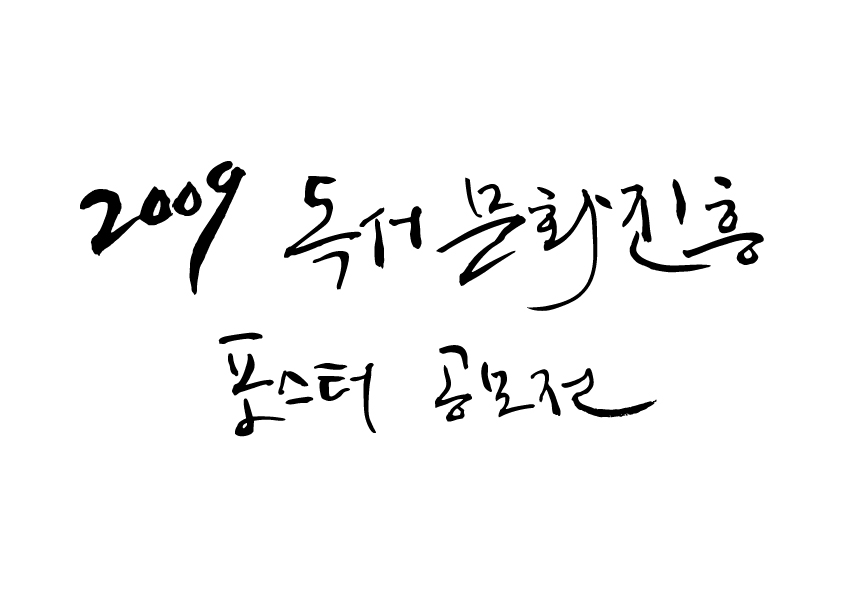 2009 독서문화진흥
포스터 공모전